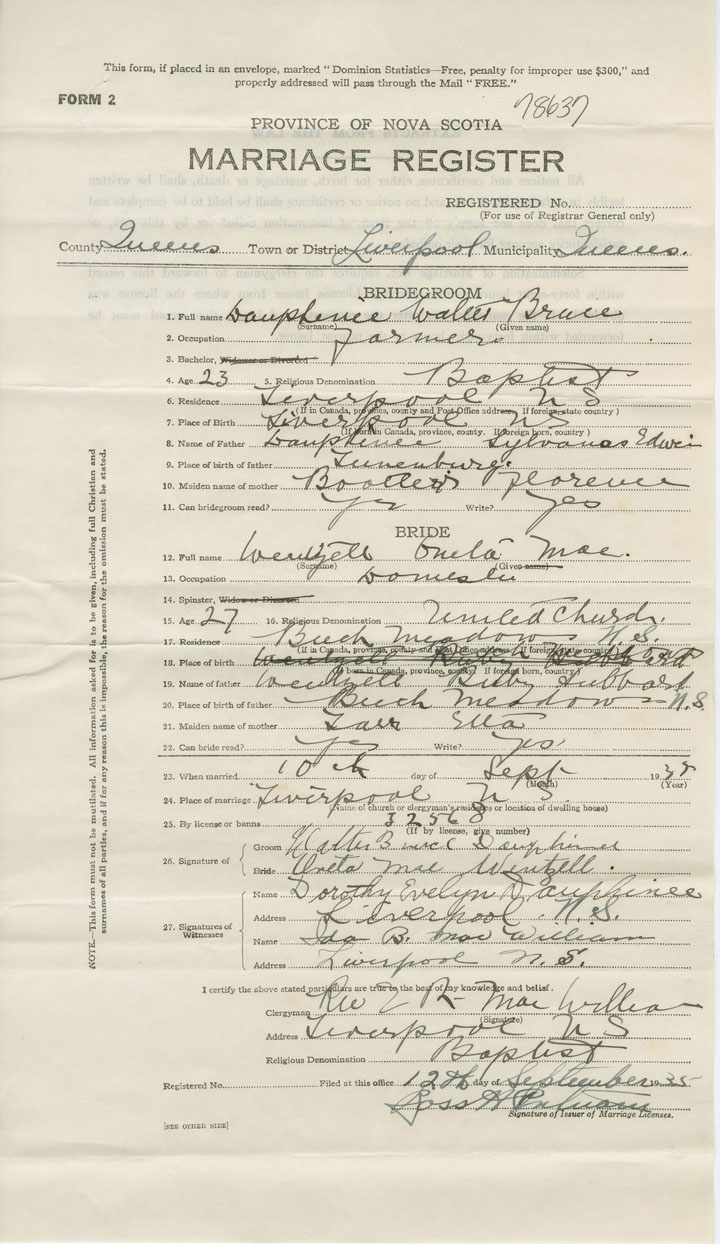 This form, if placed in an envelope, marked "Dominion Statistics—Free, penalty for improper use $300," and
properly addressed will pass through the Mail "FREE."
FORM 2
78637
PROVINCE OF NOVA SCOTIA
MARRIAGE REGISTER
REGISTERED No.
(For use of Registrar General only)
County Queens Town or District Liverpool Municipality Queens.
BRIDEGROOM
1. Full name Dauphinee Walter Bruce
(Surname) (Given name)
2. Occupation Farmer
3. Bachelor, Widower or Divorced
4. Age 23 5. Religious Denomination Baptist
6. Residence Liverpool N S
(If in Canada, province, county and Post Office address. If foreign state country)
7. Place of Birth Liverpool NS
(If born in Canada, province, county. If foreign born, country)
8. Name of Father Dauphinee Sylvanas Edwin
9. Place of birth of father Lunenburg.
10. Maiden name of mother Florence
11. Can bridegroom read? Yes Write? Yes
BRIDE
12. Full name Wentzell Mae.
(Surname) (Given name)
13. Occupation Domestic
14. Spinster, Widow or Divorced
15. Age 27 16. Religious Denomination United Church.
17. Residence Beech Meadows N.S.
(If in Canada, province, county and Post Office address. If foreign state country)
18. Place of birth Wentzell
(If born in Canada, province, county. If foreign born, country)
19. Name of father Wentzell Hubbard
20. Place of birth of father Beech Meadows N.S.
21. Maiden name of mother Tarr Ella
22. Can bride read? Yes Write? Yes
23. When married 10th day of Sept 1935
(Month) (Year)
24. Place of marriage Liverpool N S.
(Name of church or clergyman's residence or location of dwelling house)
25. By license or banns 32568
(If by license, give number)
26. Signature of
Groom Walter Bruce Dauphinee
Bride Oneta Mae Wentzell.
27. Signatures of Witnesses
Name Dorothy Evelyn Dauphinee
Address Liverpool. N.S.
Name Ida B. MacWilliam
Address Liverpool N.S.
I certify the above stated particulars are true to the best of my knowledge and belief.
Clergyman Rev MacWilliam
(Signature)
Address Liverpool N S
Religious Denomination Baptist
Registered No. Filed at this office 12th day of September 1935
Ross H Putnam
Signature of Issuer of Marriage Licenses.
[SEE OTHER SIDE]
NOTE.—This form must not be mutilated. All information asked for is to be given, including full Christian and
surnames of all parties, and if for any reason this is impossible, the reason for the omission must be stated.